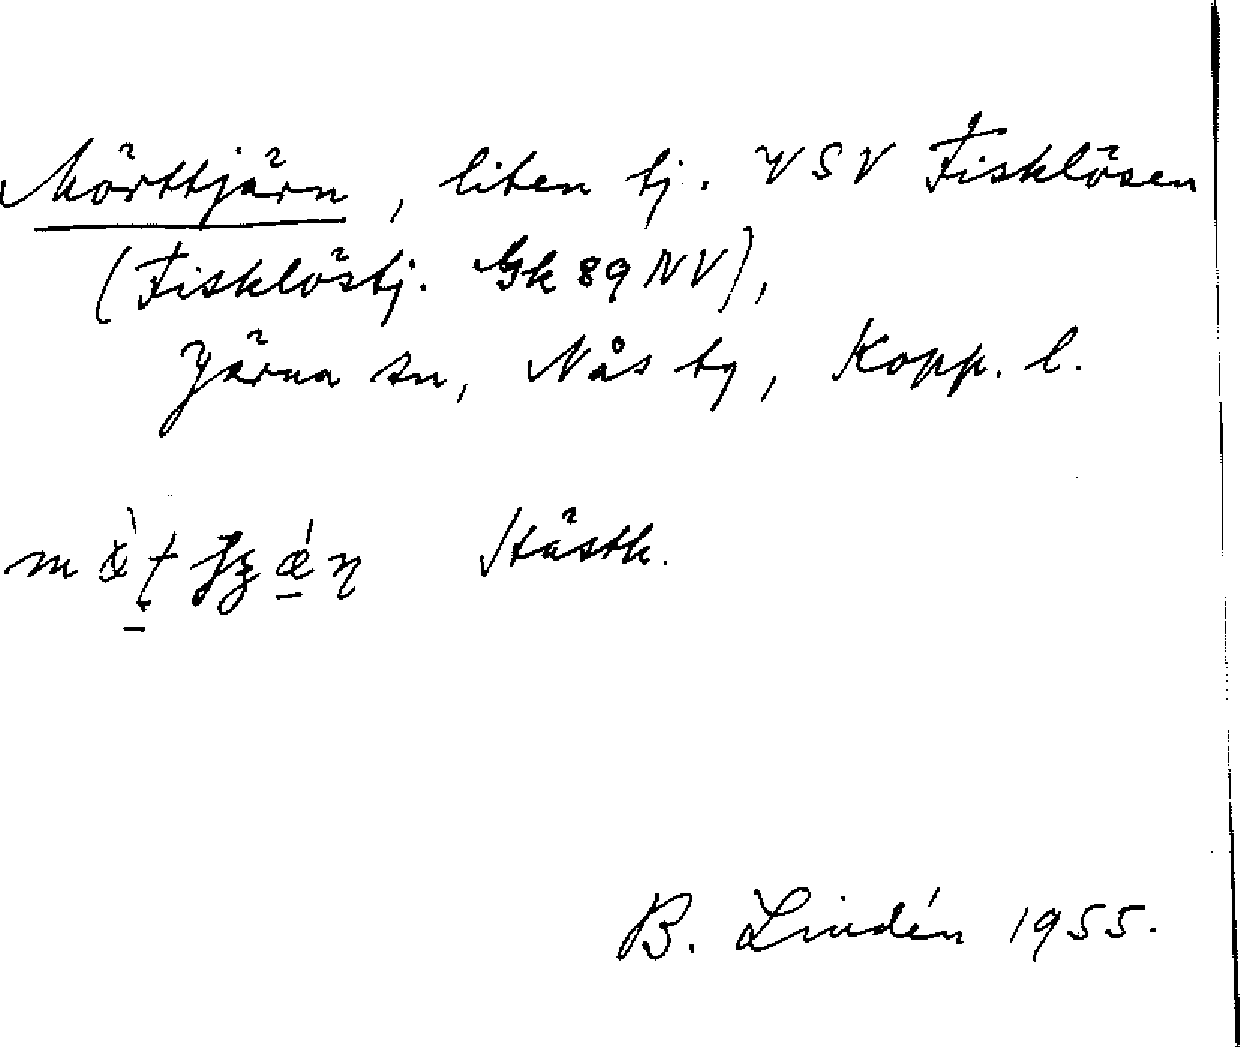 Mörttjärn, liten tj. VSV Fisklösen
(Fisklöstj. Gk 89 NV),
Järna sn, Nås by, Kopp. l.
Hästh.
B. Lindén 1955.